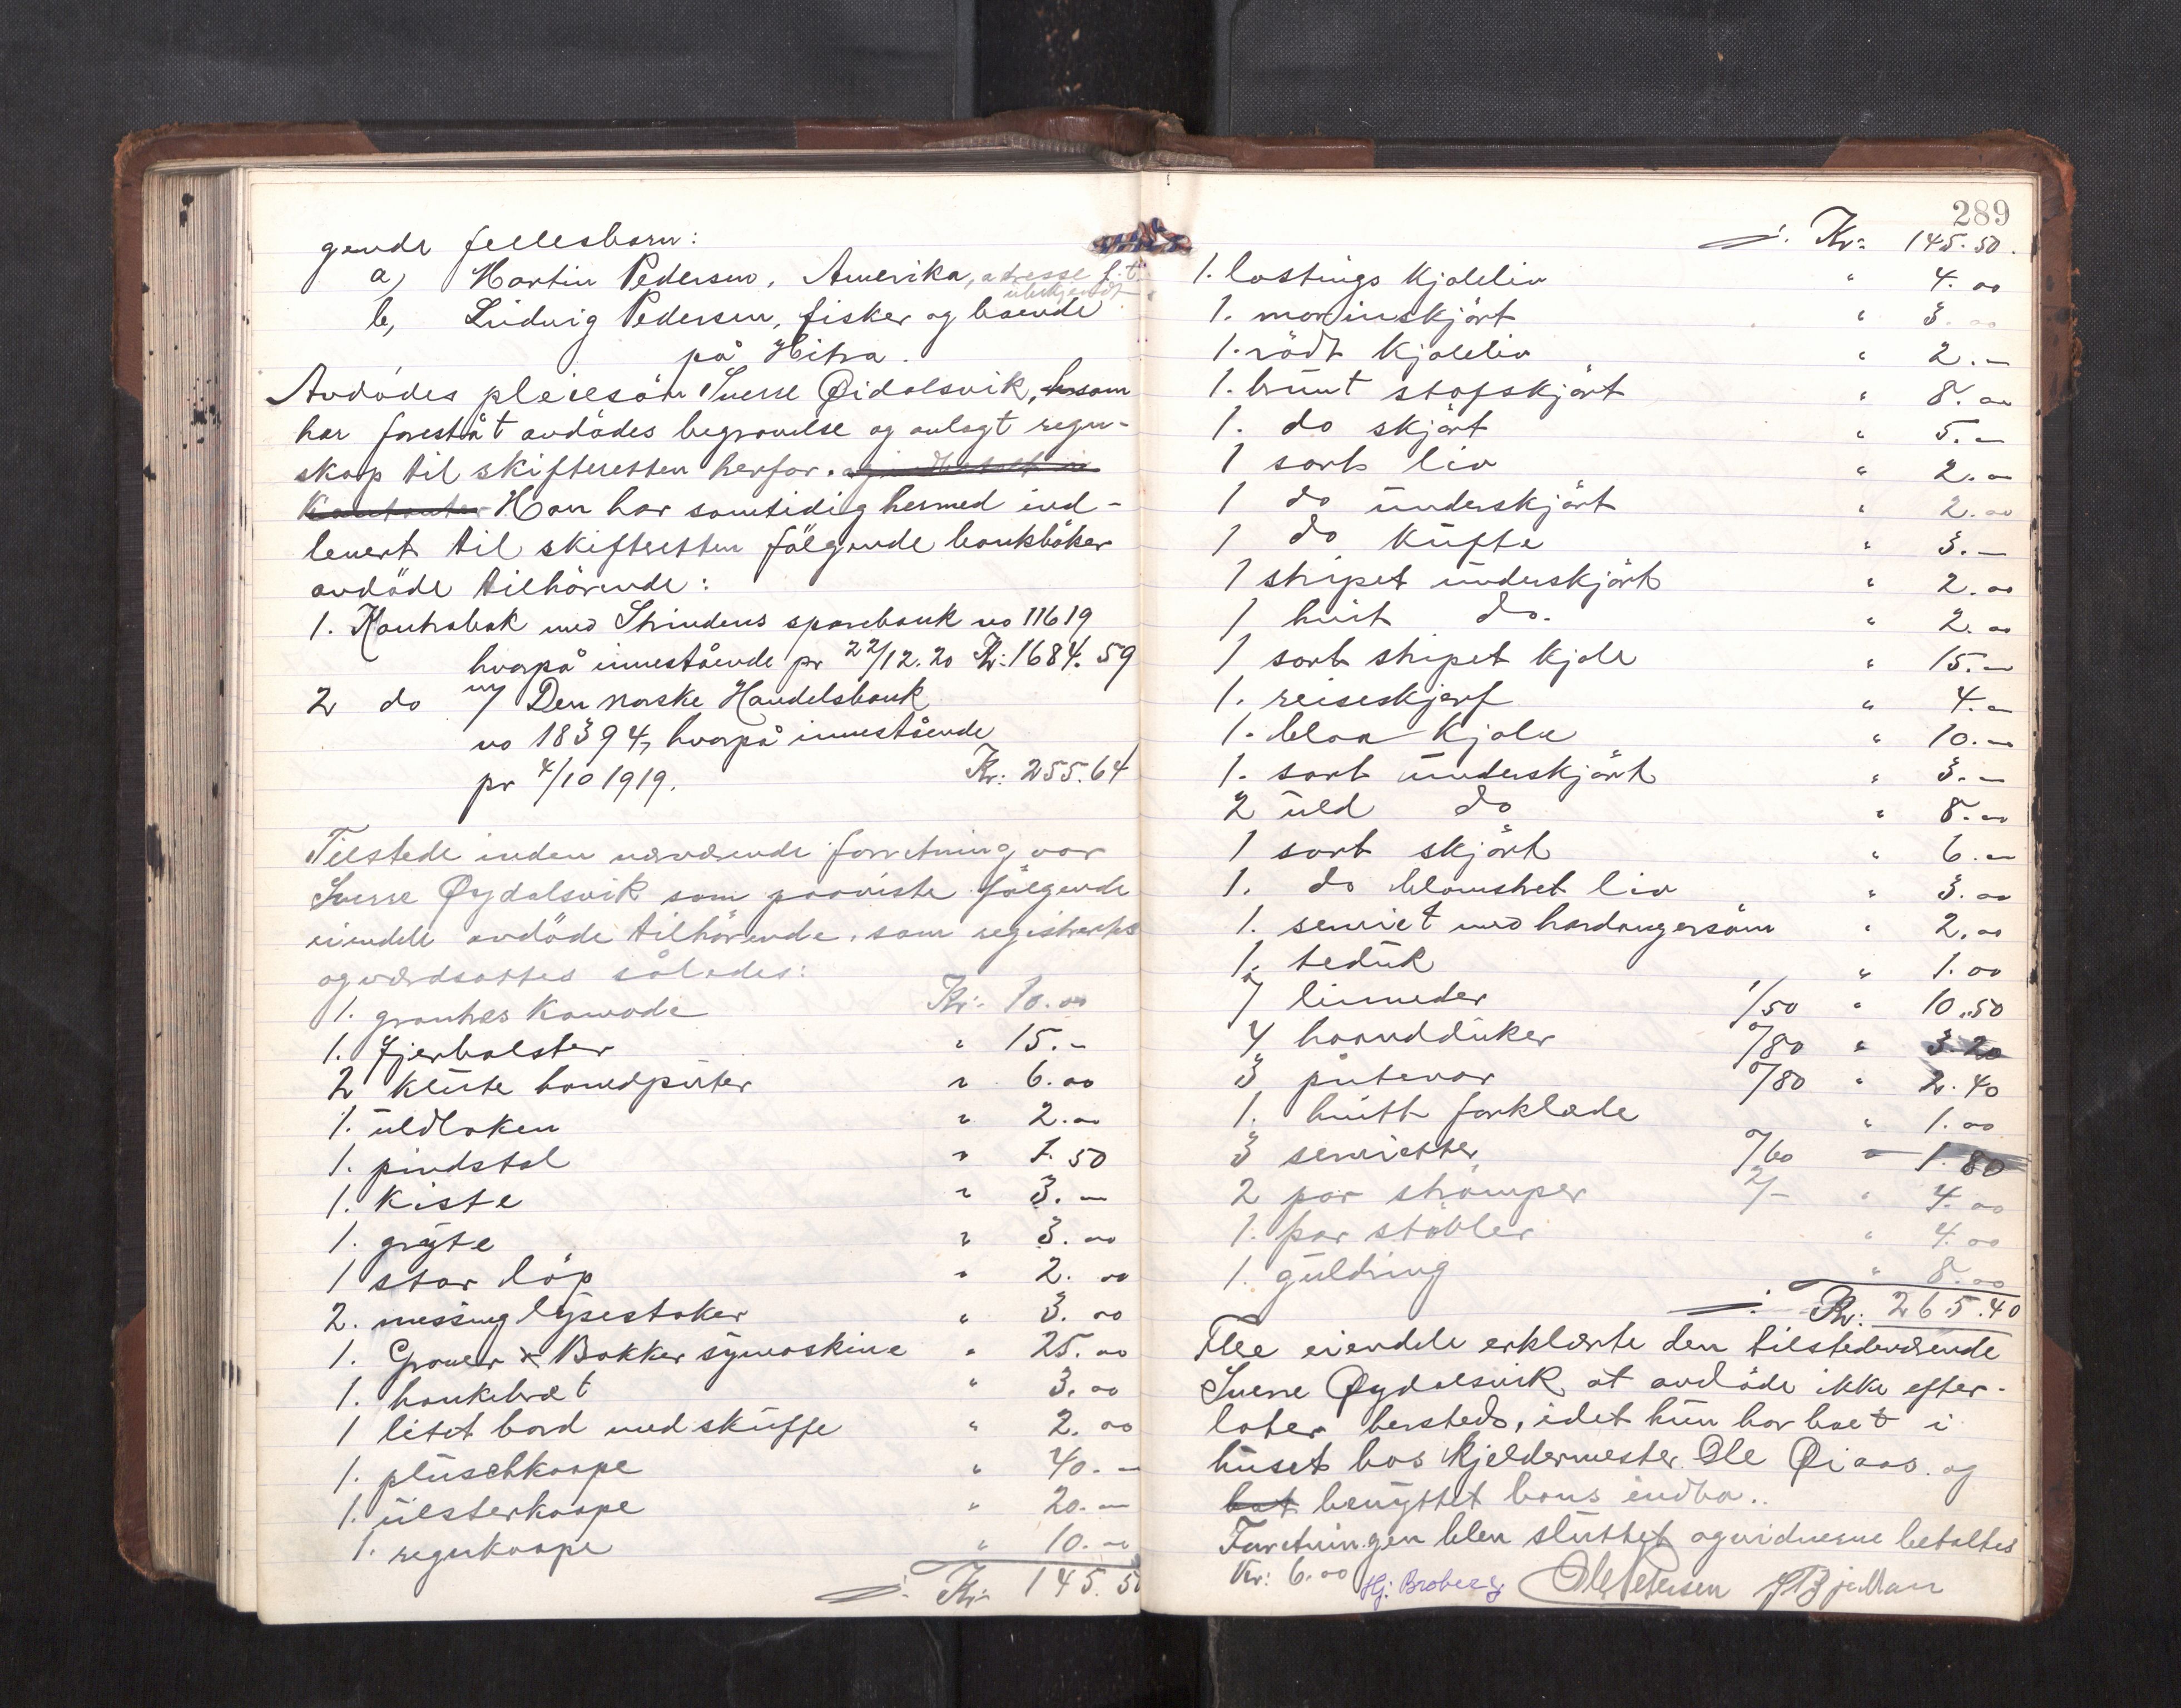 gende fællesbarn:
a) Martin Pedersen, Amerika, adresse f.t. ubekjendt
b, Ludvig Pedersen, fisker og boende
på Hitra.
Avdødes pleiesøn Sverre Øidalsvik, som
har forestått avdødes begravelse og avlagt regn-
skap til skifteretten herfor.
Han har samtidig hermed ind-
levert til skifteretten følgende bankbøker
avdøde tilhørende:
1. Kontrabok med Strindens sparebank no 11619
hvorpå innestående pr 22/12.20 Kr: 1684.59
2 do m/ Den norske Handelsbank
no 18394, hvorpå innestående
pr 4/10 1919. Kr: 255.64
Tilstede inden nærværende forretning var
Sverre Øydalsvik som paaviste følgende
eiendele avdøde tilhørende, som registrertes
og værdsattes således:
1. grantræs komode Kr: 10.00
1. fjerbolster " 15.-
2 kulørte hovedputer " 6.00
1. uldlaken " 2.00
1. pindstol " 1.50
1. kiste " 3.-
1. gryte " 3.00
1 stor løp " 2.00
2. messing lysestaker " 3.00
1. Grover & Bakker symaskine " 25.00
1. hankebræt " 3.00
1 litet bord med skuffe " 2.00
1. pluschkaape " 40.-
1. ulsterkaape " 20.-
1. regnkaape " 10.-
Kr: 145.50
289
Kr: 145.50.
1. lastings kjoleliv " 4.00
1. morinskjørt " 3.00
1. rødt kjoleliv " 2.-
1. brunt stofskjørt " 8.00
1. do skjørt " 5.-
1 sort liv " 2.00
1 do underskjørt " 2.00
1 do kufte " 3.-
1 stripet underskjørt " 2.00
1 hvit do. " 2.00
1 sort stripet kjole " 15.-
1. reiseskjerf " 4.-
1. blaa kjole " 10.-
1. sort underskjørt " 3.-
2 uld do " 8.00
1 sort skjørt " 6.-
1. do blomstret liv " 3.00
1. serviet med hardangersøm " 2.00
1. teduk " 1.00
7 linneder 1/50 " 10.50
4 haandduker 0/80 " 3.20
3 putevar 0/80 " 2.40
1. hvitt forklæde " 1.00
3 servietter 0/60 " 1.80
2 par strømper 2/- " 4.00
1. par støvler " 4.00
1. guldring " 8.00
Kr: 265.40
Flee eiendele erklærte den tilstedeværende
Sverre Øydalsvik at avdøde ikke efter-
later hersteds, idet hun har boet i
huset hos kjeldermester Ole Øiaas og
benyttet hans indbo..
Forretningen blev sluttet og vidnerne betaltes
Kr: 6.00 Hj. Broberg Ole Petersen